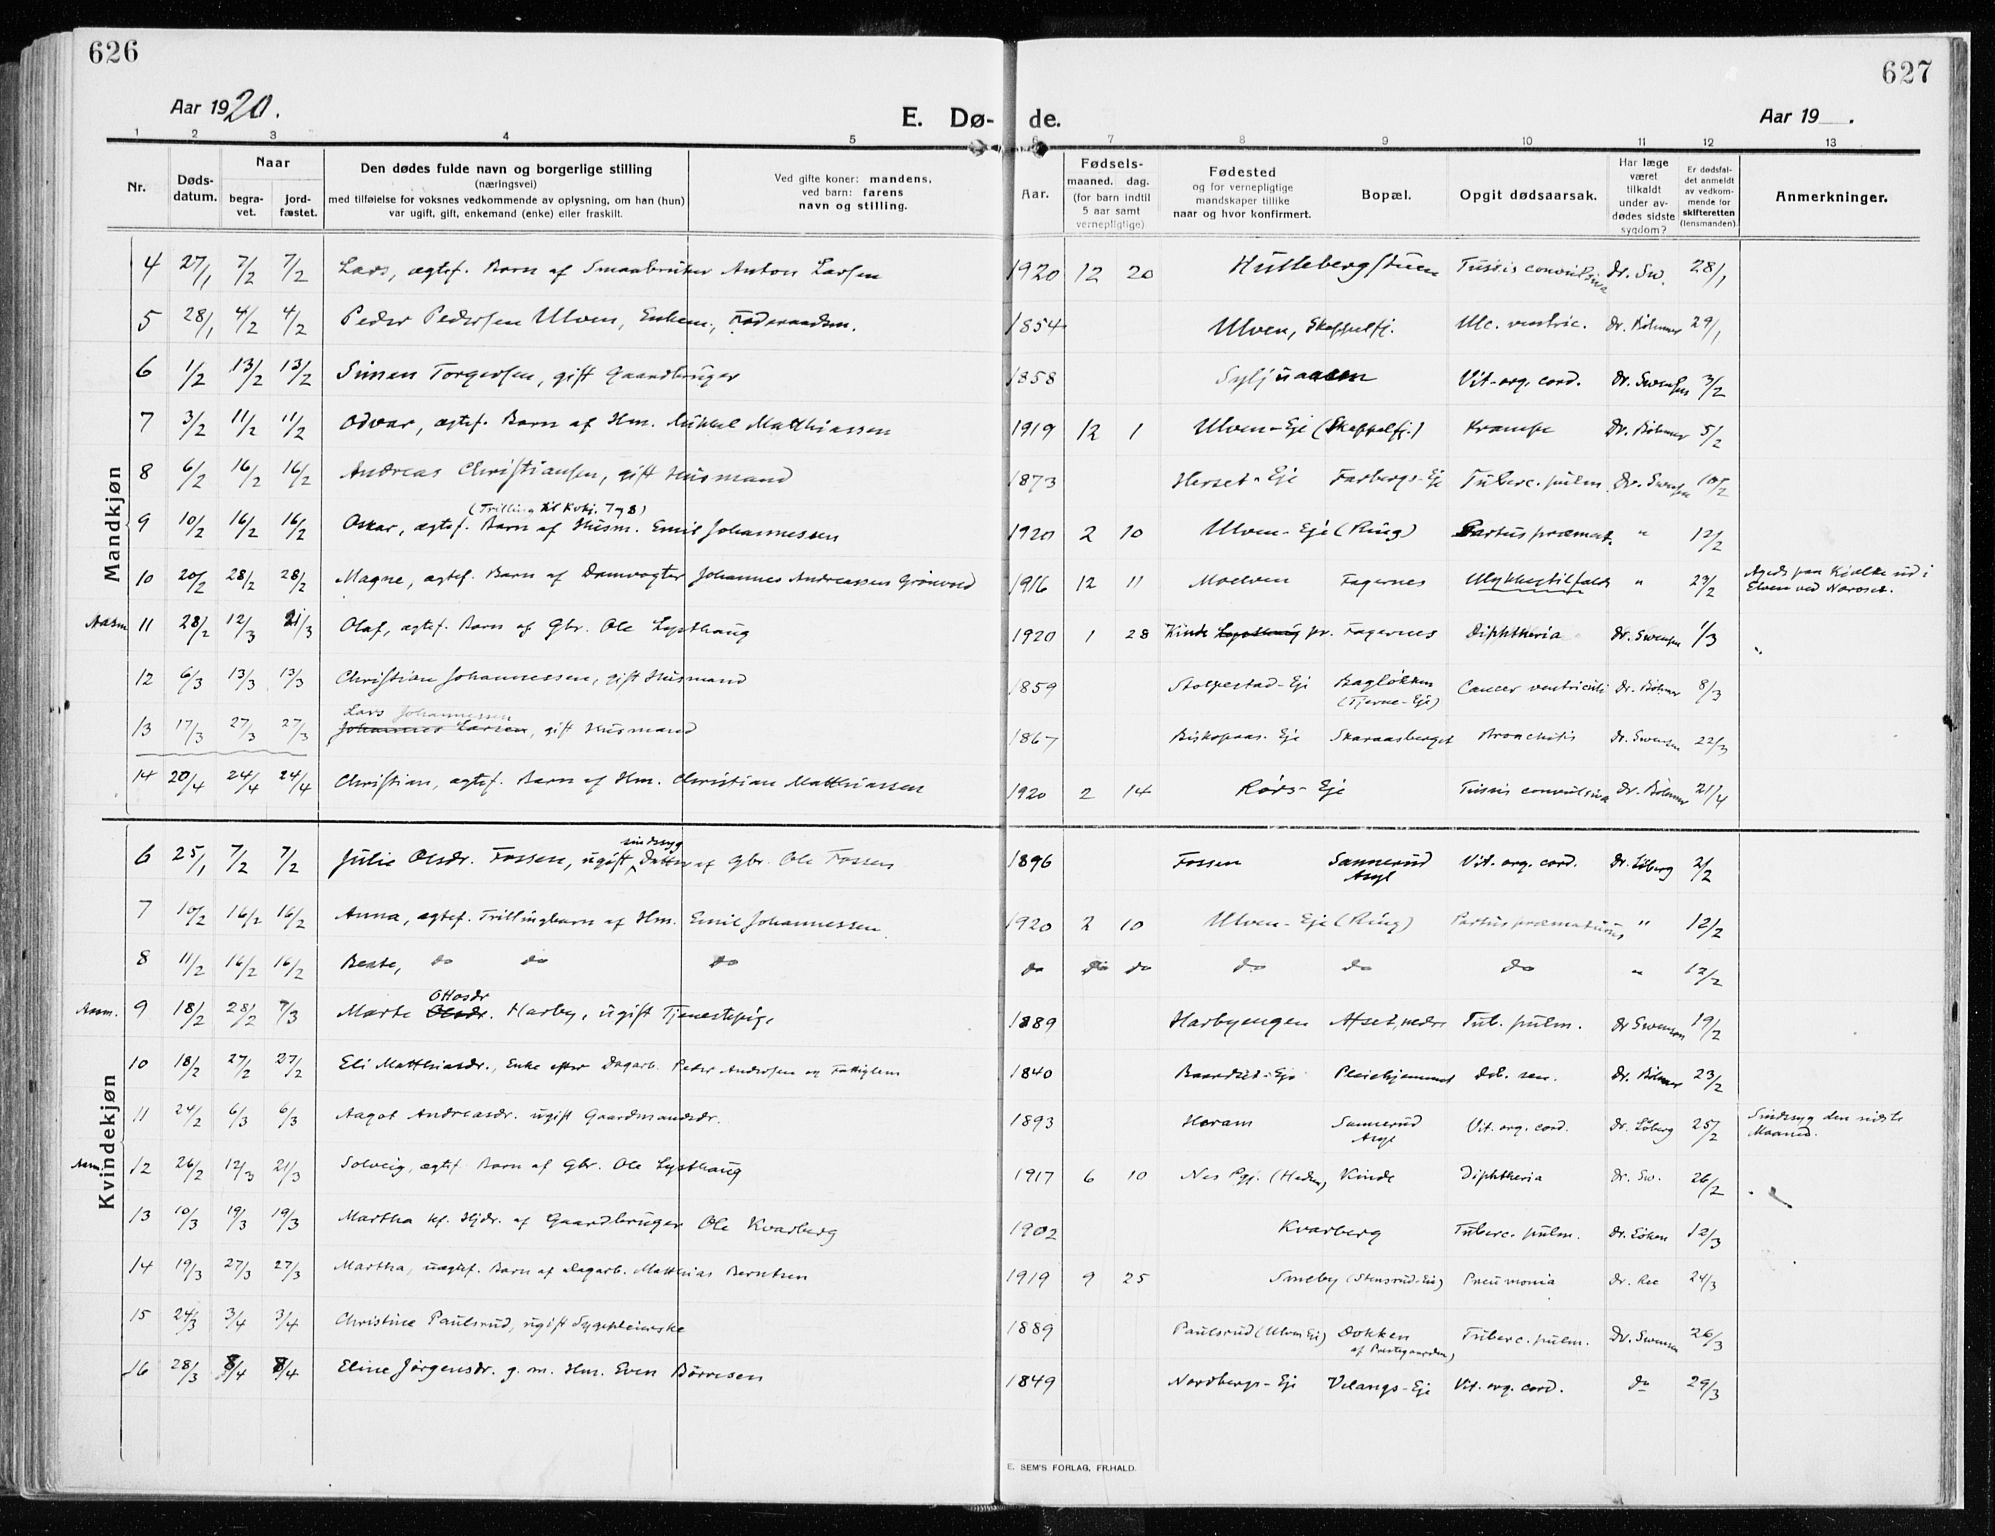 626
627
Aar 1920.
E. Dø-
de.
Aar 19 .
1 2 3 4 5 6 7 8 9 10 11 12 13
Nr.
Døds-
datum.
Naar
begra-
vet.
jord-
fæstet.
Den dødes fulde navn og borgerlige stilling
(næringsvei)
med tilføielse for voksnes vedkommende av oplysning, om han (hun)
var ugift, gift, enkemand (enke) eller fraskilt.
Ved gifte koner: mandens,
ved barn: farens
navn og stilling.
Aar.
Fødsels-
maaned. dag.
(for barn indtil
5 aar samt
vernepligtige)
Fødested
og for vernepligtige
mandskaper tillike
naar og hvor konfirmert.
Bopæl.
Opgit dødsaarsak.
Har læge
været
tilkaldt
under av-
dødes sidste
sygdom?
Er dødsfal-
det anmeldt
av vedkom-
mende for
skifteretten
(lensmanden).
Anmerkninger.
Mandkjøn
4 27/1 7/2 7/2 Lars, ægtef. Barn af Smaabruker Anton Larsen 1920 12 20 Hullebergstuen Tussis convulsiva Dr. Sw. 28/1
5 28/1 4/2 4/2 Peder Pedersen Ulven, Enkem., Føderaadsm. 1854 Ulven, Skappelfj. Ulc. ventric. Dr. Böhmer 29/1
6 1/2 13/2 13/2 Simen Torgersen, gift Gaardbruger 1858 Syljuaasen Vit. org. cord. Dr. Swensen 3/2
7 3/2 11/2 11/2 Odvar, ægtef. Barn af Hm. Mikkel Matthiassen 1919 12 1 Ulven-Eje (Skappelfj.) Krampe Dr. Böhmer 5/2
8 6/2 16/2 16/2 Andreas Christiansen, gift Husmand 1873 Herset-Eje Farbergs-Eje Tuberc. pulm. Dr. Swensen 10/2
(Trilling til Kvkj. 7 og 8)
9 10/2 16/2 16/2 Oskar, ægtef. Barn af Husm. Emil Johannessen 1920 2 10 Ulven-Eje (Ring) Partus præmat. " 12/2
10 20/2 28/2 28/2 Magne, ægtef. Barn af Damvogter Johannes Andreassen Grønvold 1916 12 11 Moelven Fagernes Ulykkestilfælde " 23/2 Agede paa Kjælke ud i
Elven ved Noroset.
Aasm. 11 28/2 12/3 21/3 Olaf, ægtef. Barn af Gbr. Ole Lysthaug 1920 1 28 Kinde Lysthaug pr. Fagernes Diphtheria Dr. Swensen 1/3 "
12 6/3 13/3 13/3 Christian Johannessen, gift Husmand 1859 Stolpestad-Eje Bagløkken
(Tjerne-Eje) Cancer ventriculi Dr. Böhmer 8/3
Lars Johannessen
13 17/3 27/3 27/3 Johannes Larsen, gift Husmand 1867 Biskopaas-Eje Skaraasberget Bronchitis Dr. Swensen 22/3
14 20/4 24/4 24/4 Christian, ægtef. Barn af Hm. Christian Matthiassen 1920 2 14 Rørs-Eje Tussis convulsiva Dr. Böhmer 21/4
Kvindekjøn
sindssyg
6 25/1 7/2 7/2 Julie Olsdr. Fossen, ugift Datter af Gbr. Ole Fossen 1896 Fossen Sannerud
Asyl Vit. org. cord. Dr. Løberg 2/2
7 10/2 16/2 16/2 Anna, ægtef. Trillingbarn af Hm. Emil Johannessen 1920 2 10 Ulven-Eje (Ring) Partus præmaturus " 12/2
8 11/2 16/2 16/2 Beate, do do do do do do do do do " 12/2
Ottosdr
Aasm. 9 18/2 28/2 7/3 Marte Olsdr. Harby, ugift Tjenestepige 1889 Harbyengen Afset, nedre Tub. pulm. Dr Swensen 19/2
10 18/2 27/2 27/2 Eli Matthiasdr., Enke efter Dagarb. Peder Andersen og Fattiglem 1840 Baardset-Eje Pleiehjemmet deb. sen. Dr. Böhmer 23/2
11 24/2 6/3 6/3 Aagot Andreasdr. ugift Gaardmandsdr. 1893 Heram Sannerud
Asyl Vit. org. cord. Dr. Løberg 25/2 Sindssyg den sidste
Maaned.
Aasm. 12 26/2 12/3 21/3 Solveig, ægtef. Barn af Gbr. Ole Lysthaug 1917 6 10 Nes Pgj. (Heden) Kinde Diphtheria Dr. Sw. 26/2
13 10/3 19/3 19/3 Martha kf. Hjdr. af Gaardbruger Ole Kvarberg 1902 Kvarberg Tuberc. pulm. Dr. Löken 12/3
14 19/3 27/3 27/3 Martha, uægtef. Barn af Dagarb. Matthias Berntsen 1919 9 25 Smeby (Stensrud-Eje) Pneumonia Dr. Ree 24/3
15 24/3 3/4 3/4 Christine Paulsrud, ugift Sygepleierske 1889 Paulsrud (Ulven Eje) Dokken
af Prestegaarden) Tuberc. pulm. Dr. Swensen 26/3
16 28/3 8/4 8/4 Eline Jørgensdr. g. m. Hm. Even Børresen 1849 Nordbergs-Eje Velangs-Eje Vit. org. cord. do 29/3
E. SEM'S FORLAG, FR.HALD.